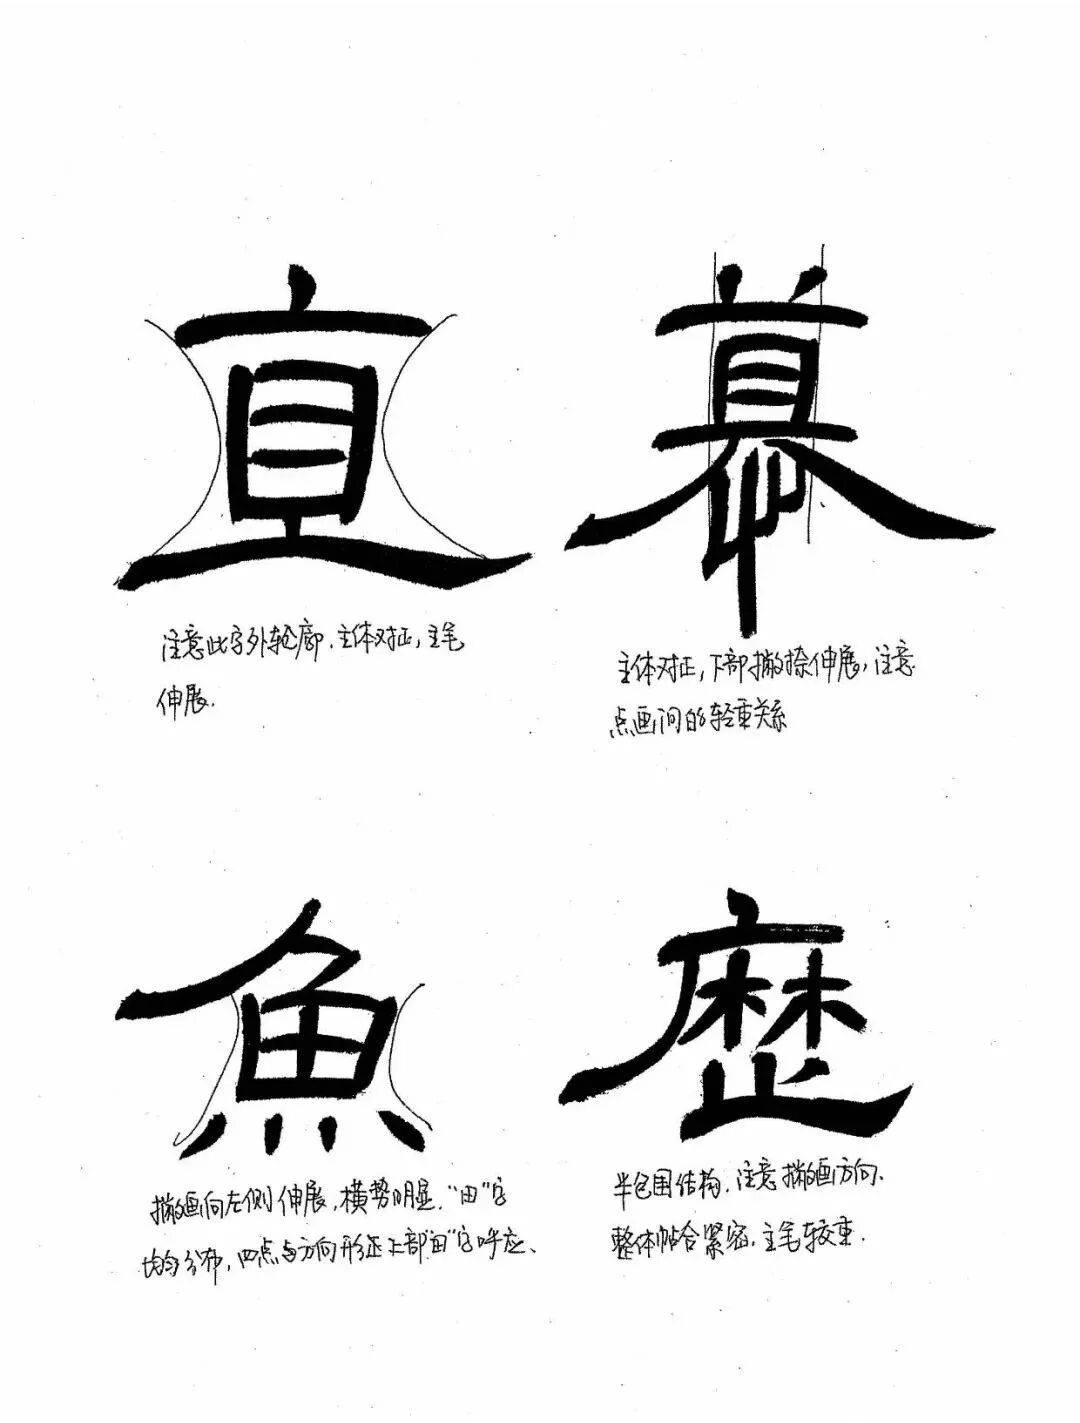 宜
注意此字外轮廓,主体对正,主笔
伸展.
慕
主体对正,下部撇捺伸展,注意
点画间的轻重关系
魚
撇画向左侧伸展,横势明显."田"字
均匀分布,四点与方向形正上部"田"字呼应、
歷
半包围结构.注意撇画方向、
整体帖合紧密.主笔较重.